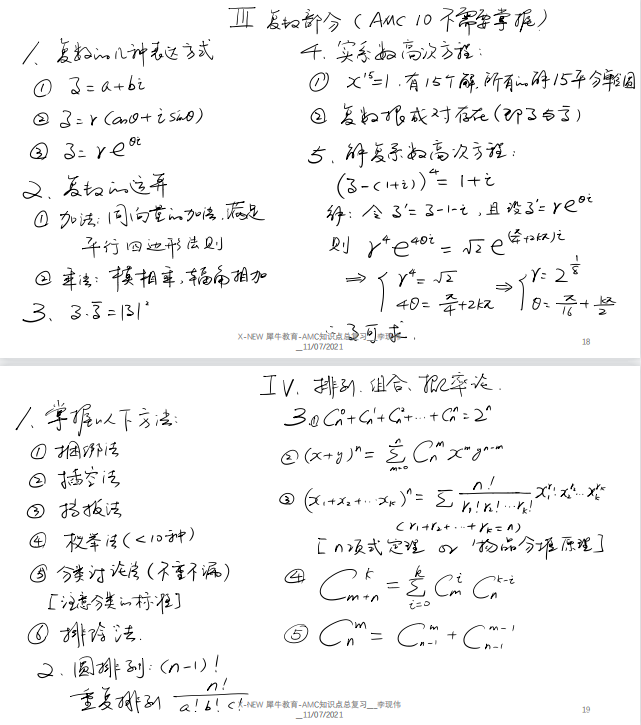 III 复数部分 (AMC 10 不需要掌握)
1. 复数的几种表达方式
① z = a+bi
② z = r(cosθ+i sinθ)
③ z = re^{θi}
2. 复数的运算
① 加法: 同向量的加法, 满足
平行四边形法则
② 乘法: 模相乘, 辐角相加
3. z·z̄ = |z|²
4. 实系数高次方程:
① x^{15}=1. 有15个解, 所有的解15平分单位圆
② 复数根成对存在 (即 z 与 z̄)
5. 解复系数高次方程:
(z-(1+i))^4 = 1+i
解: 令 z' = z-1-i, 且设 z' = re^{θi}
则 r^4 e^{4θi} = √2 e^{(π/4+2kπ)i}
⇒ { r^4 = √2 ⇒ { r = 2^{1/8}
4θ = π/4+2kπ θ = π/16 + kπ/2
∴ z 可求.
X-NEW 犀牛教育-AMC知识点总复习__李现伟
__11/07/2021
18
IV. 排列. 组合、概率论.
1. 掌握以下方法:
① 捆绑法
② 插空法
③ 挡板法
④ 枚举法 (<10种)
⑤ 分类讨论法 (不重不漏)
[注意分类的标准]
⑥ 排除法.
2. 圆排列: (n-1)!
重复排列 n!/(a! b! c!)
3.① C_n^0+C_n^1+C_n^2+…+C_n^n = 2^n
② (x+y)^n = ∑_{m=0}^{n} C_n^m x^m y^{n-m}
③ (x_1+x_2+…x_k)^n = ∑ n!/(r_1! r_2! … r_k!) x_1^{r_1}·x_2^{r_2}…x_k^{r_k}
(r_1+r_2+…+r_k=n)
[n项式定理 or 物品分堆原理]
④ C_{m+n}^k = ∑_{i=0}^{k} C_m^i C_n^{k-i}
⑤ C_n^m = C_{n-1}^m + C_{n-1}^{m-1}
X-NEW 犀牛教育-AMC知识点总复习__李现伟
__11/07/2021
19